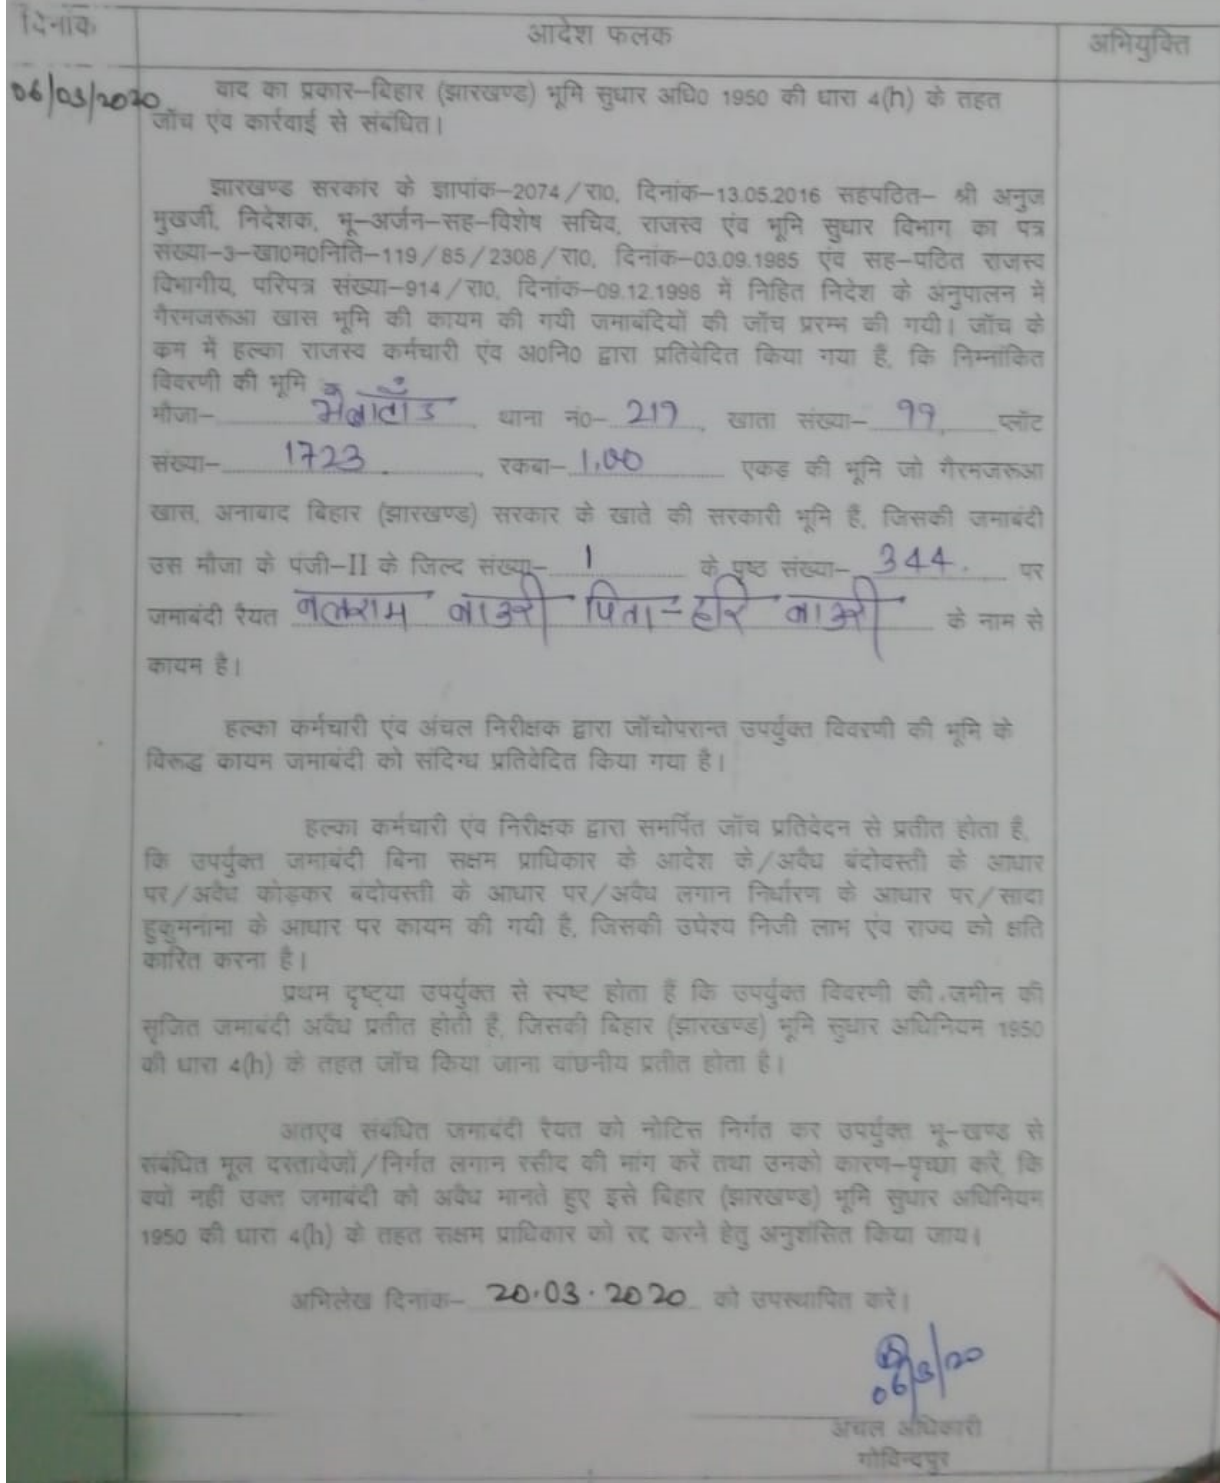 दिनांक
आदेश फलक
अभियुक्ति
06/03/2020
वाद का प्रकार–बिहार (झारखण्ड) भूमि सुधार अधि0 1950 की धारा 4(h) के तहत
जॉच एंव कार्रवाई से संबंधित।
झारखण्ड सरकार के ज्ञापांक–2074/रा0, दिनांक–13.05.2016 सहपठित– श्री अनुज
मुखर्जी, निदेशक, भू–अर्जन–सह–विशेष सचिव, राजस्व एंव भूमि सुधार विभाग का पत्र
संख्या–3–खा0म0निति–119/85/2308/रा0, दिनांक–03.09.1985 एंव सह–पठित राजस्व
विभागीय, परिपत्र संख्या–914/रा0, दिनांक–09.12.1998 में निहित निदेश के अनुपालन में
गैरमजरूआ खास भूमि की कायम की गयी जमाबंदियों की जॉच प्ररम्भ की गयी। जॉच के
कम में हल्का राजस्व कर्मचारी एंव अ0नि0 द्वारा प्रतिवेदित किया गया है, कि निम्नांकित
विवरणी की भूमि
मौजा– थाना नं0– 217, खाता संख्या– 99, प्लॉट
संख्या– 1723, रकबा– 1.00 एकड की भूमि जो गैरमजरूआ
खास, अनाबाद बिहार (झारखण्ड) सरकार के खाते की सरकारी भूमि है, जिसकी जमाबंदी
उस मौजा के पंजी–II के जिल्द संख्या– 1 के पृष्ठ संख्या– 344. पर
जमाबंदी रैयत बलराम बाउरी पिता–हरि बाउरी के नाम से
कायम है।
हल्का कर्मचारी एंव अंचल निरीक्षक द्वारा जॉचोपरान्त उपर्युक्त विवरणी की भूमि के
विरूद्ध कायम जमाबंदी को संदिग्ध प्रतिवेदित किया गया है।
हल्का कर्मचारी एंव निरीक्षक द्वारा समर्पित जॉच प्रतिवेदन से प्रतीत होता है,
कि उपर्युक्त जमाबंदी बिना सक्षम प्राधिकार के आदेश के/अवैध बंदोवस्ती के आधार
पर/अवैध कोड़कर बंदोवस्ती के आधार पर/अवैध लगान निर्धारण के आधार पर/सादा
हुकुमनामा के आधार पर कायम की गयी है, जिसकी उपेश्य निजी लाभ एंव राज्य को क्षति
कारित करना है।
प्रथम दृष्ट्या उपर्युक्त से स्पष्ट होता है कि उपर्युक्त विवरणी की जमीन की
सृजित जमाबंदी अवैध प्रतीत होती है, जिसकी बिहार (झारखण्ड) भूमि सुधार अधिनियम 1950
की धारा 4(h) के तहत जॉच किया जाना वांछनीय प्रतीत होता है।
अतएव संबंधित जमाबंदी रैयत को नोटिस निर्गत कर उपर्युक्त भू–खण्ड से
संबंधित मूल दस्तावेजों/निर्गत लगान रसीद की मांग करें तथा उनको कारण–पृच्छा करें, कि
क्यों नहीं उक्त जमाबंदी को अवैध मानते हुए इसे बिहार (झारखण्ड) भूमि सुधार अधिनियम
1950 की धारा 4(h) के तहत सक्षम प्राधिकार को रद्द करने हेतु अनुशंसित किया जाय।
अभिलेख दिनांक– 20.03.2020 को उपस्थापित करें।
06/3/20
अंचल अधिकारी
गोविन्दपुर